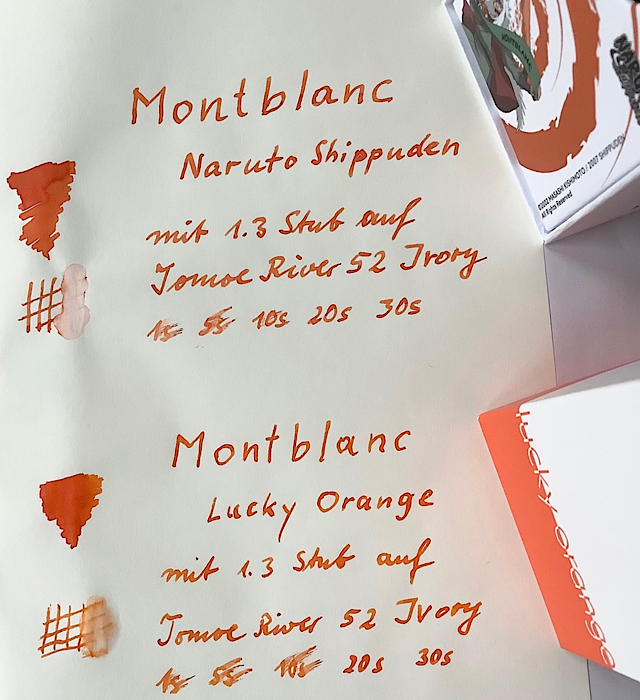 Montblanc
Naruto Shippuden
mit 1.3 Stub auf
Tomoe River 52 Ivory
1s 5s 10s 20s 30s
Montblanc
Lucky Orange
mit 1.3 Stub auf
Tomoe River 52 Ivory
1s 5s 10s 20s 30s
©2002 MASASHI KISHIMOTO / 2007 SHIPPUDEN
All Rights Reserved
lucky orange